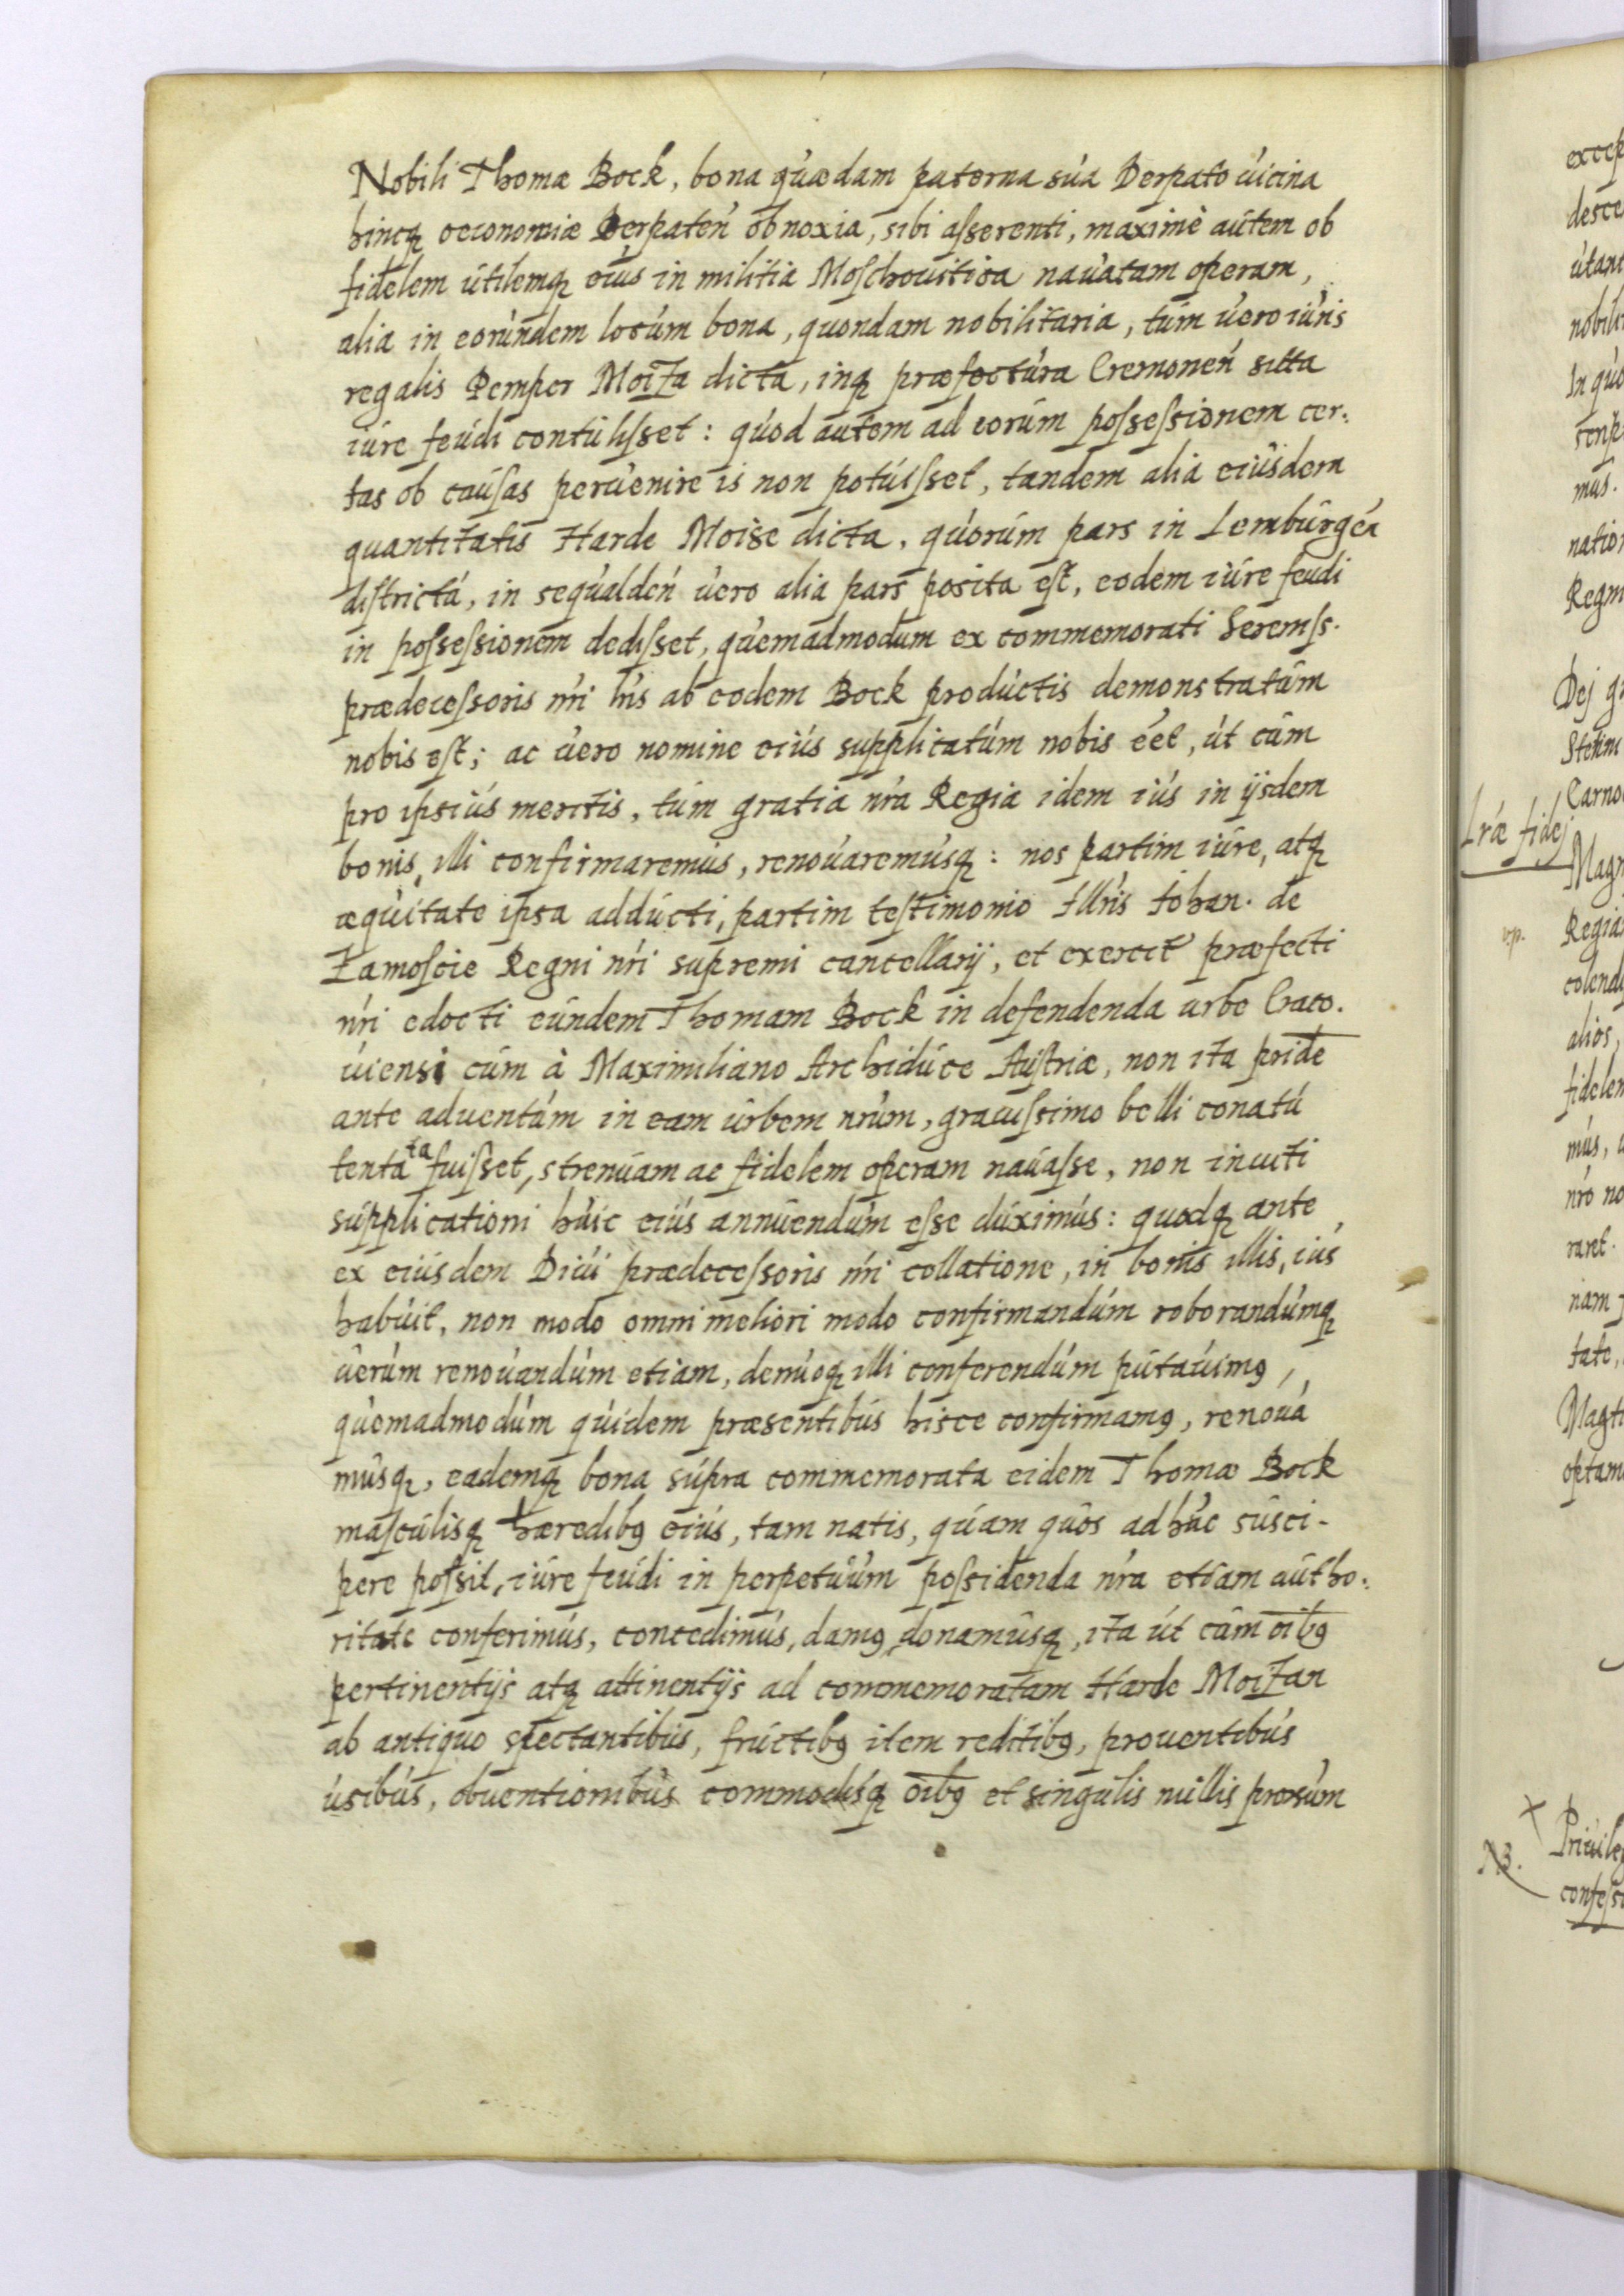 Nobili Thomæ Bock, bona quædam paterna súa Derpato úicina
hincq; oeconomiæ Derpateń obnoxia, sibi aſserenti, maximè aútem ob
fidelem útilemq; eiús in militia Moſchouitica naúatam operam,
alia in eorúndem locúm bona, quondam nobilitaria, túm úero iúris
regalis Pemper Moiza dicta, inq; præfectúra Cremoneń sitta
iúre feúdi contúliſset: qúod aútem ad eorúm poſseſsionem cer:
tas ob caúſas perúenire is non potúiſset, tandem alia eiúsdem
quantitatis Harde Moise dicta, qúorúm pars in Lembúrgeń
diſtrictú, in seqúaldeń úero alia pars posita eſt, eodem iúre feudi
in poſseſsionem dediſset, qúemadmodum ex commemorati Sereniſs.
prædeceſsoris nŕi lŕis ab eodem Bock prodúctis demonstratúm
nobis eſt; ac úero nomine eiús supplicatúm nobis éet, út cúm
pro ipsiús meritis, túm gratia nŕa Regia idem iús in ijsdem
bonis, illi confirmaremús, renoúaremúsq;: nos partim iúre, atq;
æqúitate ipsa addúcti, partim teſtimonio Illŕis Johan. de
Zamoſcie Regni nŕi supremi cancellarij, et exercit præfecti
nŕi edocti eúndem Thomam Bock in defendenda urbe Craco.
úiensi cúm à Maximiliano Archidúce Auſtriæ, non ita pridē
ante aduentúm in eam úrbem nŕúm, grauiſsimo belli conatú
tentata fuiſset, strenúam ac fidelem operam naúaſse, non inuiti
súpplicationi húic eiús annúendúm eſse dúximús: quodq; ante
ex eiúsdem Diúi prædeceſsoris nŕi collatione, in bonis illis, iús
habúit, non modo omni meliori modo confirmandúm roborandúmq;
úerúm renoúandúm etiam, denúoq; illi conferendúm pútaúimꝯ,
qúemadmodúm qúidem præsentibús hisce confirmamꝯ, renoúa
músq;, eademq; bona súpra commemorata eidem Thomæ Bock
maſcúlisq; hæredibꝯ eiús, tam natis, qúam qúos adhúc súsci-
pere poſsit, iúre feúdi in perpetúúm poſsidenda nŕa etiam aútho:
ritate conferimús, concedimús, damꝯ, donamúsq;, ita út cúm oībꝯ
pertinentijs atq; attinentijs ad commemoratam Harde Moizan
ab antiquo spectantibús, frúctibꝯ item reditibꝯ, prouentibús
úsibús, obuentionibús commodisq; oībꝯ et singulis núllis prorsúm
Lŕæ fidej
NB.